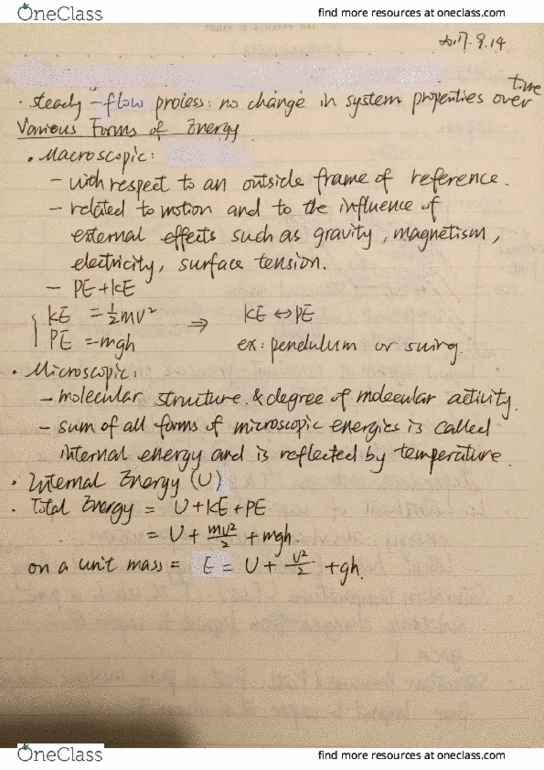 OneClass
find more resources at oneclass.com
TODAY IS A HAPPY DAY
2017.9.14
time
• steady-flow process: no change in system properties over
Various Forms of Energy.
• Macroscopic:
- with respect to an outside frame of reference.
- related to motion and to the influence of
external effects such as gravity, magnetism,
electricity, surface tension.
- PE+KE
{ KE = ½mv² ⇒ KE ↔ PE
PE = mgh ex: pendulum or swing.
• Microscopic:
- molecular structure & degree of molecular activity.
- sum of all forms of microscopic energies is called
internal energy and is reflected by temperature.
• Internal Energy (U)
• Total Energy = U+KE+PE
= U + mv²/2 + mgh.
on a unit mass = E = U + v²/2 + gh.
OneClass
find more resources at oneclass.com